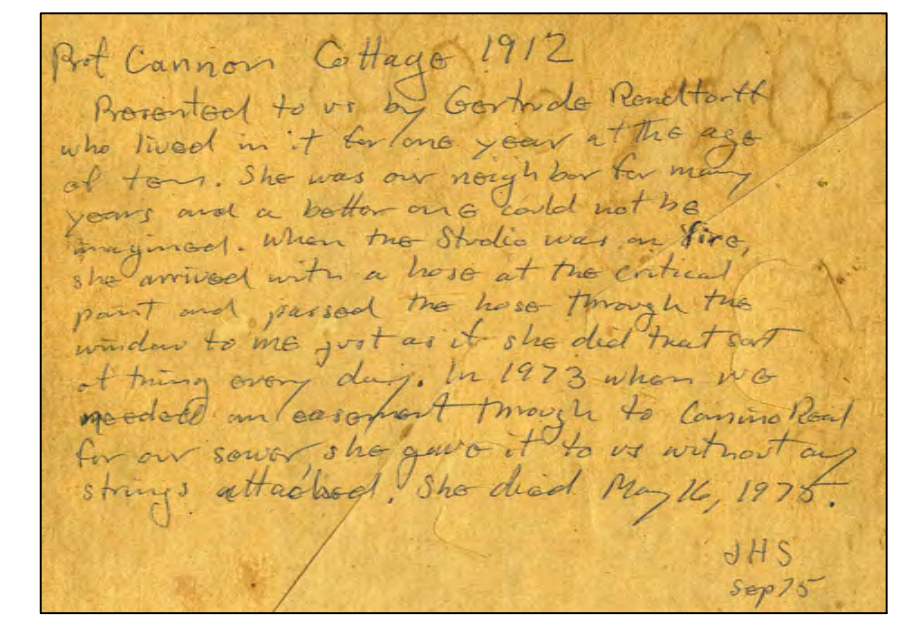 Prof Cannon Cottage 1912
Presented to us by Gertrude Rendtorff
who lived in it for one year at the age
of ten. She was our neighbor for many
years and a better one could not be
imagined. When the Studio was on fire,
she arrived with a hose at the critical
point and passed the hose through the
window to me just as if she did that sort
of thing every day. In 1973 when we
needed an easement through to Camino Real
for our sewer, she gave it to us without any
strings attached. She died May 16, 1975.
JHS
Sep 75